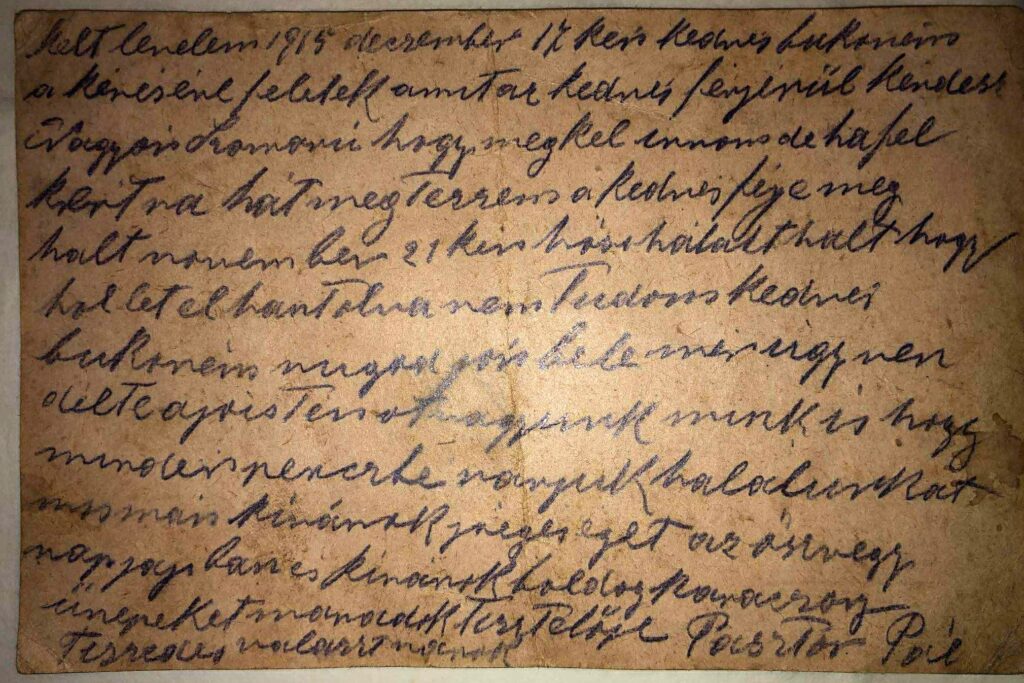 Kelt levelem 1915 deczember 17 kén kedves bukoném
a kérésére felelek amitaz kedves férjérül kérdesz
Nagyon szomorú hogy meg kel irnom de ha fel
kért rá hát megteszem a kedves féje meg
halt november 21 kén hősi halált halt hogy
hol let el hantolva nem tudom kedves
bukoném nyugod jon bele mer úgy ren
delte a jó isten ot vagyunk mink is hogy
minden perczbe várjuk halalunkat
mos már kivánok jó egéséget az özvegy
napjajban és kivánok boldog karacsony
ünepeket maradok tisztelője Pásztor Pál
Tizedes választ várok